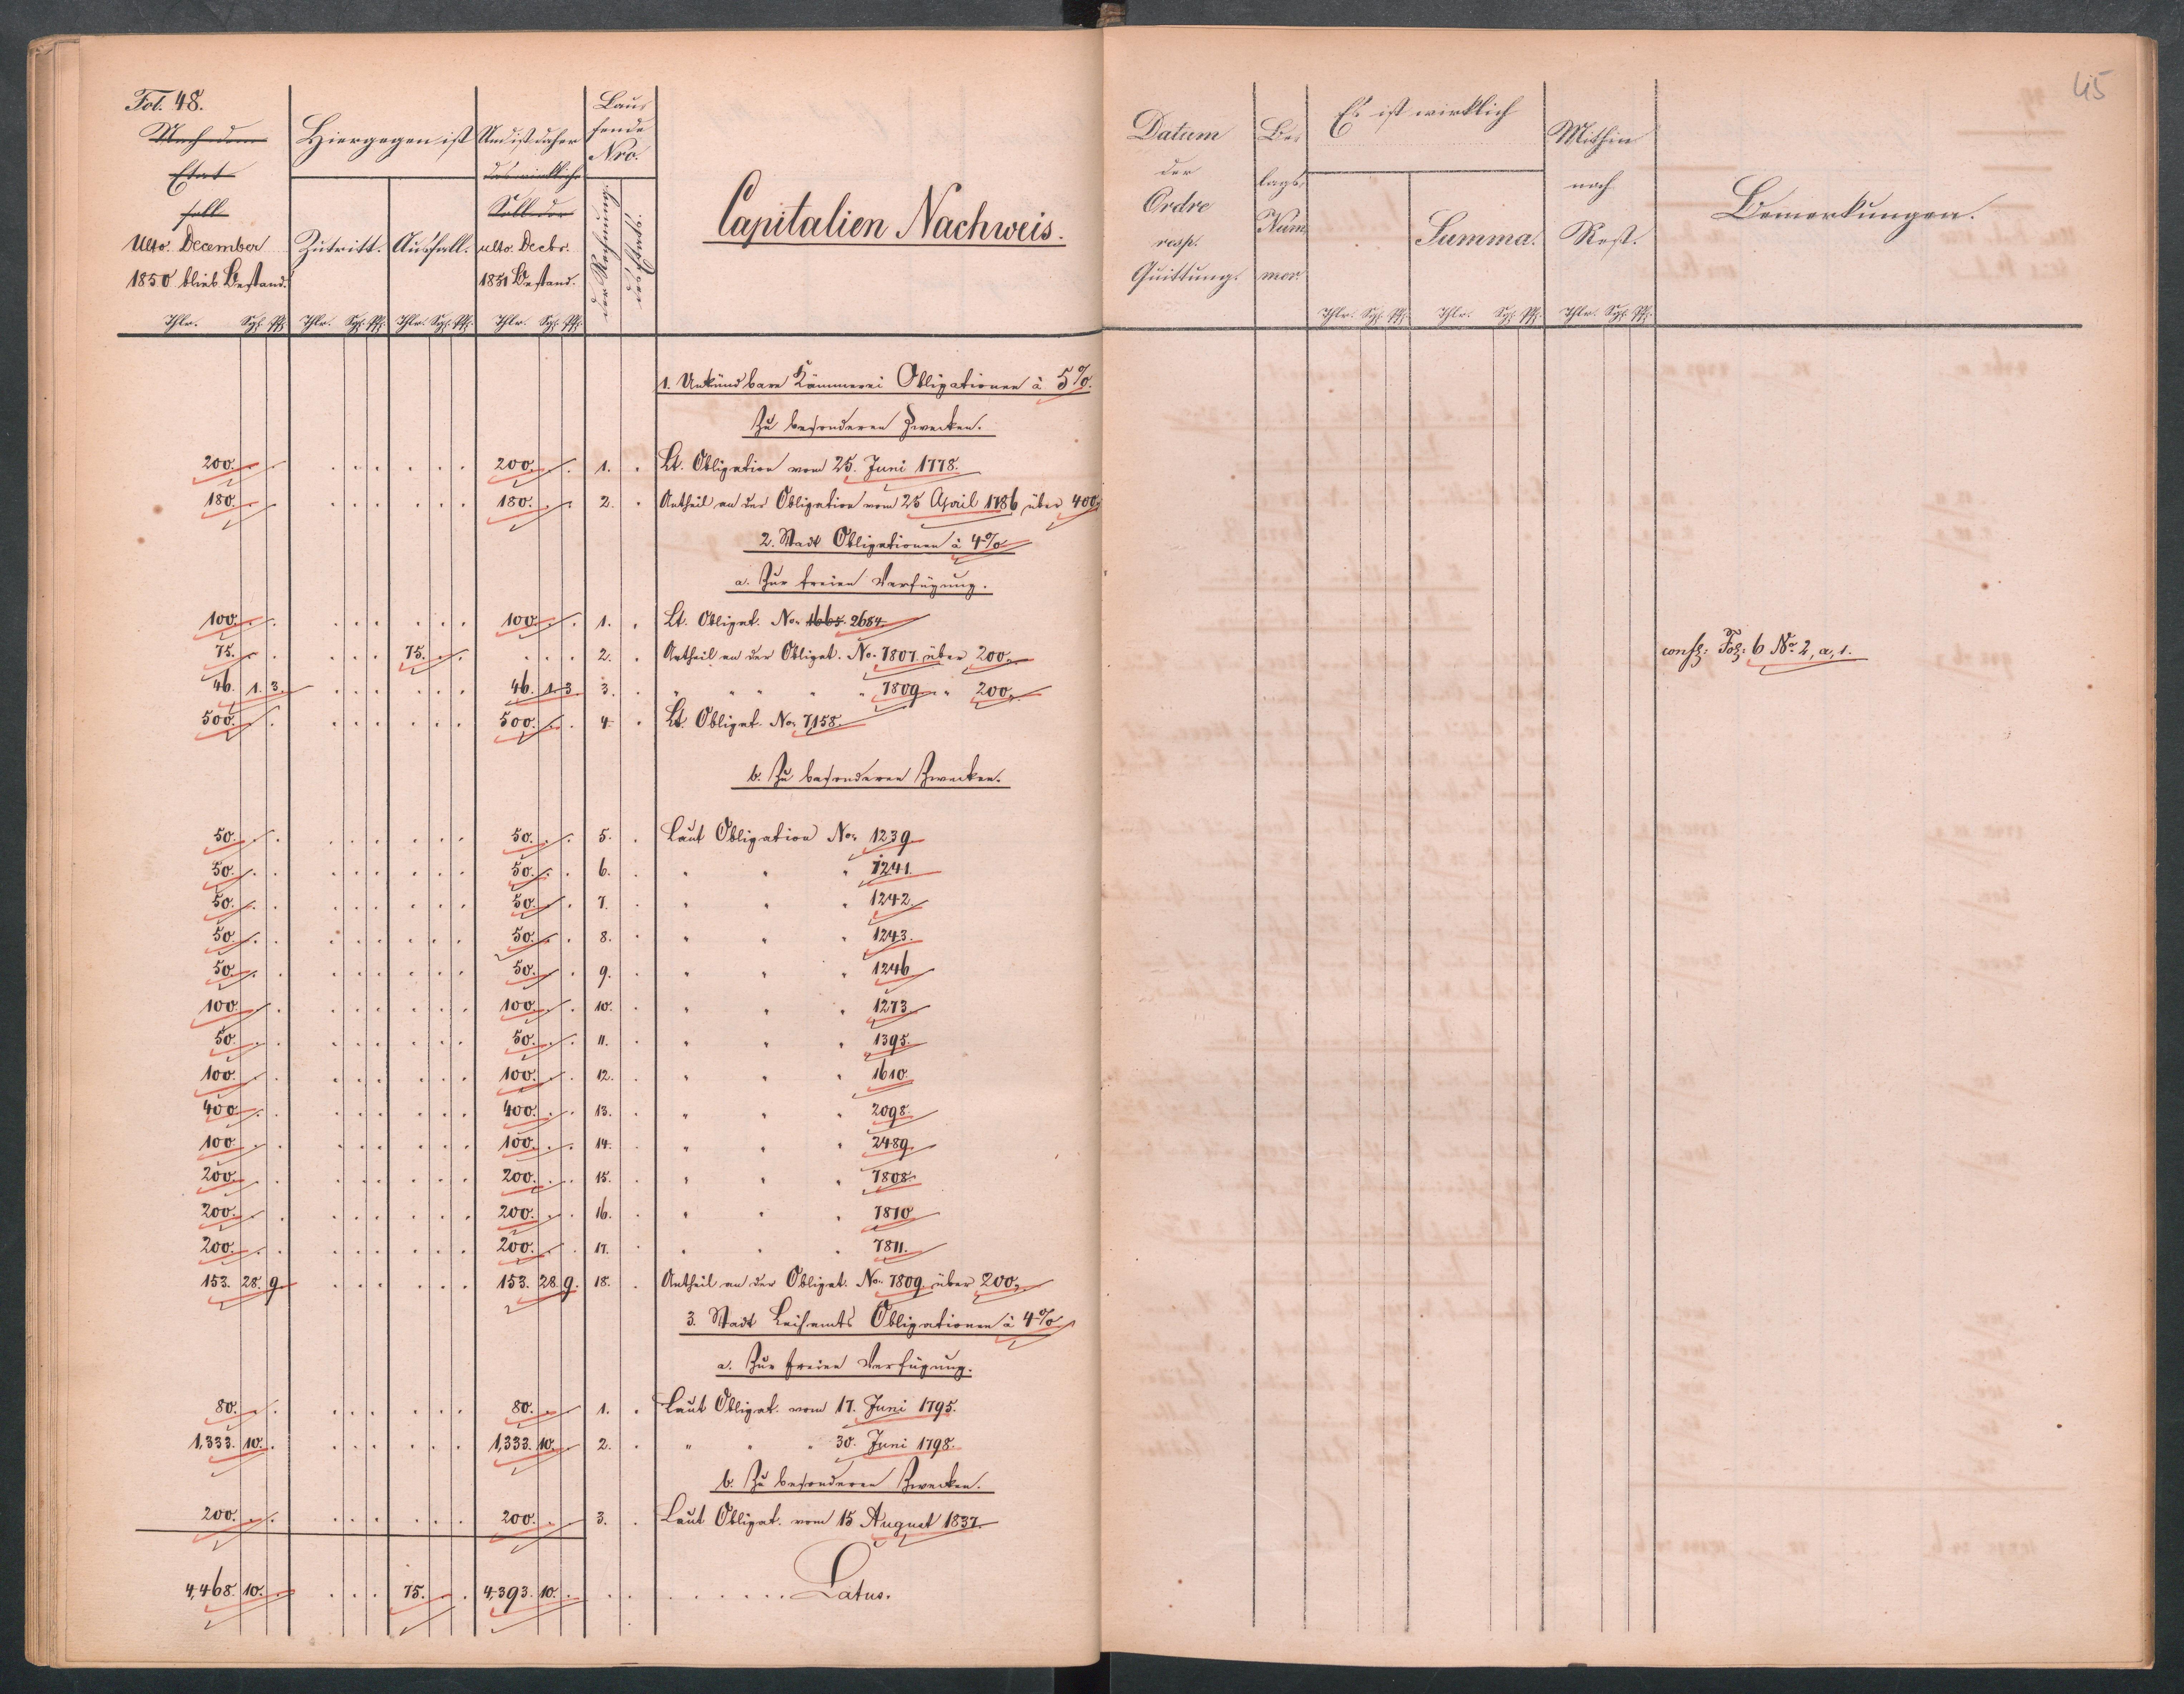 Fol. 48.
Nach dem
Etat
soll
Ulto: December
1850 blieb Bestand.
Thlr. Sgr. Pf.
Hiergegen ist
Zutritt. Ausfall.
Thlr. Sgr. Pf. Thlr. Sgr. Pf.
Und ist daher
das wirkliche
Soll der
ulto. Decbr.
1851 Bestand.
Thlr. Sgr. Pf.
Lau-
fende
Nro.
der Rechnung.
Capitalien Nachweis.
1. Unkündbare Kämmerei Obligationen à 5%.
Zu besonderen Zwecken.
200. . . . . . . . . 200. . . 1. . Lt. Obligation vom 25. Juni 1778.
180. . . . . . . . . 180. . . 2. . Antheil an der Obligation vom 25 April 1786 über 400.
2. Stadt Obligationen à 4%
a. Zur freien Verfügung.
100. . . . . . . . . 100. . . 1. . Lt. Obligat. No. 1665. 2684.
75. . . . . . 75. . . . . . 2. . Antheil an der Obligat. No. 7807. über 200.
46. 1. 3. . . . . . . 46. 1. 3. 3. . " " " " " 7809 " " 200.
500. . . . . . . . . 500. . . 4. . Lt. Obligat. No. 7158.
b. Zu besonderen Zwecken.
50. . . . . . . . . 50. . . 5. . Laut Obligation No. 1239.
50. . . . . . . . . 50. . . 6. . " " " 1241.
50. . . . . . . . . 50. . . 7. . " " " 1242.
50. . . . . . . . . 50. . . 8. . " " " 1243.
50. . . . . . . . . 50. . . 9. . " " " 1246
100. . . . . . . . . 100. . . 10. . " " " 1273
50. . . . . . . . . 50. . . 11. . " " " 1395.
100. . . . . . . . . 100. . . 12. . " " " 1610.
400. . . . . . . . . 400. . . 13. . " " " 2098.
100. . . . . . . . . 100. . . 14. . " " " 2489.
200. . . . . . . . . 200. . . 15. . " " " 7808.
200. . . . . . . . . 200. . . 16. . " " " 7810
200. . . . . . . . . 200. . . 17. . " " " 7811.
153. 28. 9. . . . . . . 153. 28. 9. 18. . Antheil an der Obligat. No. 7809. über 200.
3. Stadt Leihamts Obligationen à 4%
a. Zur freien Verfügung.
80. . . . . . . . . 80. . . 1. . Laut Obligat. vom 17. Juni 1795.
1,333. 10. . . . . . . . 1,333. 10. . 2. . " " " 30. Juni 1798.
b. Zu besonderen Zwecken.
200. . . . . . . . . 200. . . 3. . Laut Obligat. vom 15 August 1837.
4,468. 10. . . . . 75. . . 4,393. 10. . . . . . . . . . Latus.
45
Datum
der
Ordre
resp.
Quittung.
Be-
lags-
Num-
mer.
Es ist wirklich
Summa.
Thlr. Sgr. Pf. Thlr. Sgr. Pf.
Mithin
noch
Rest.
Thlr. Sgr. Pf.
Bemerkungen.
Fol: 6 No 2, a, 1.